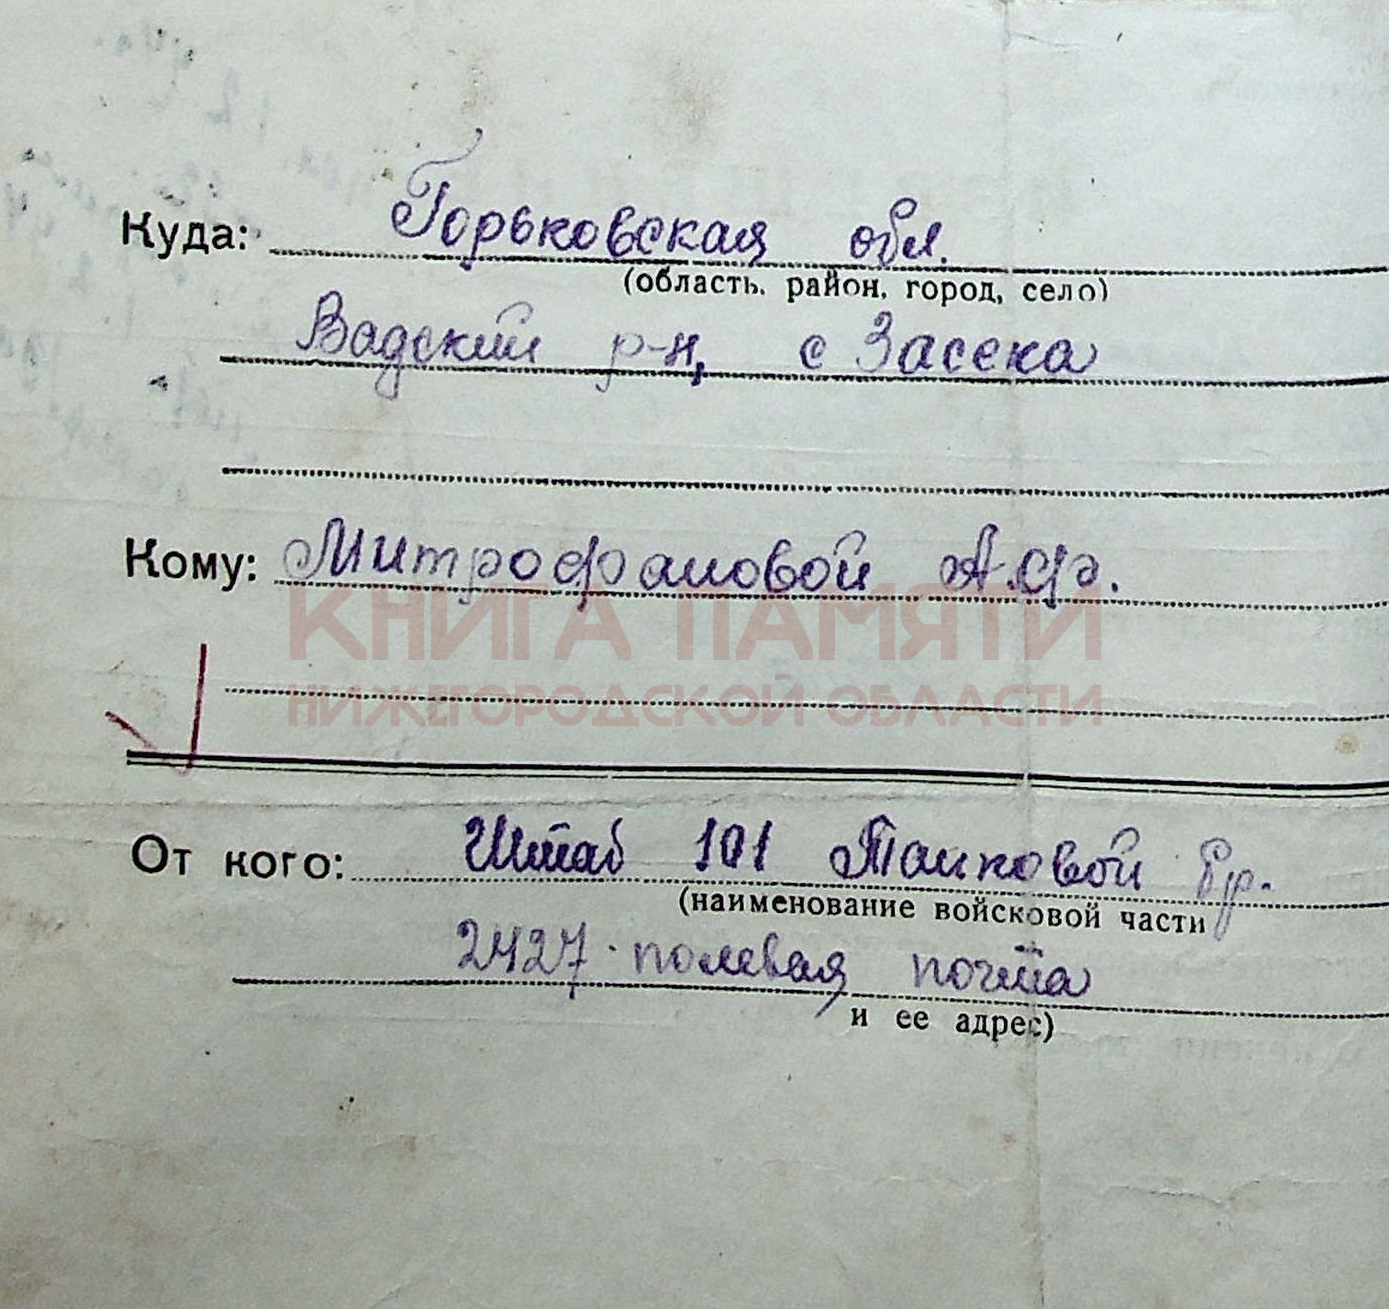 Куда: Горьковская обл.
(область, район, город, село)
Вадский р-н, с Засека
Кому: Митрофановой А.Ф.
КНИГА ПАМЯТИ
НИЖЕГОРОДСКОЙ ОБЛАСТИ
От кого: Штаб 101 Танковой бр.
(наименование войсковой части
2427 полевая почта
и ее адрес)